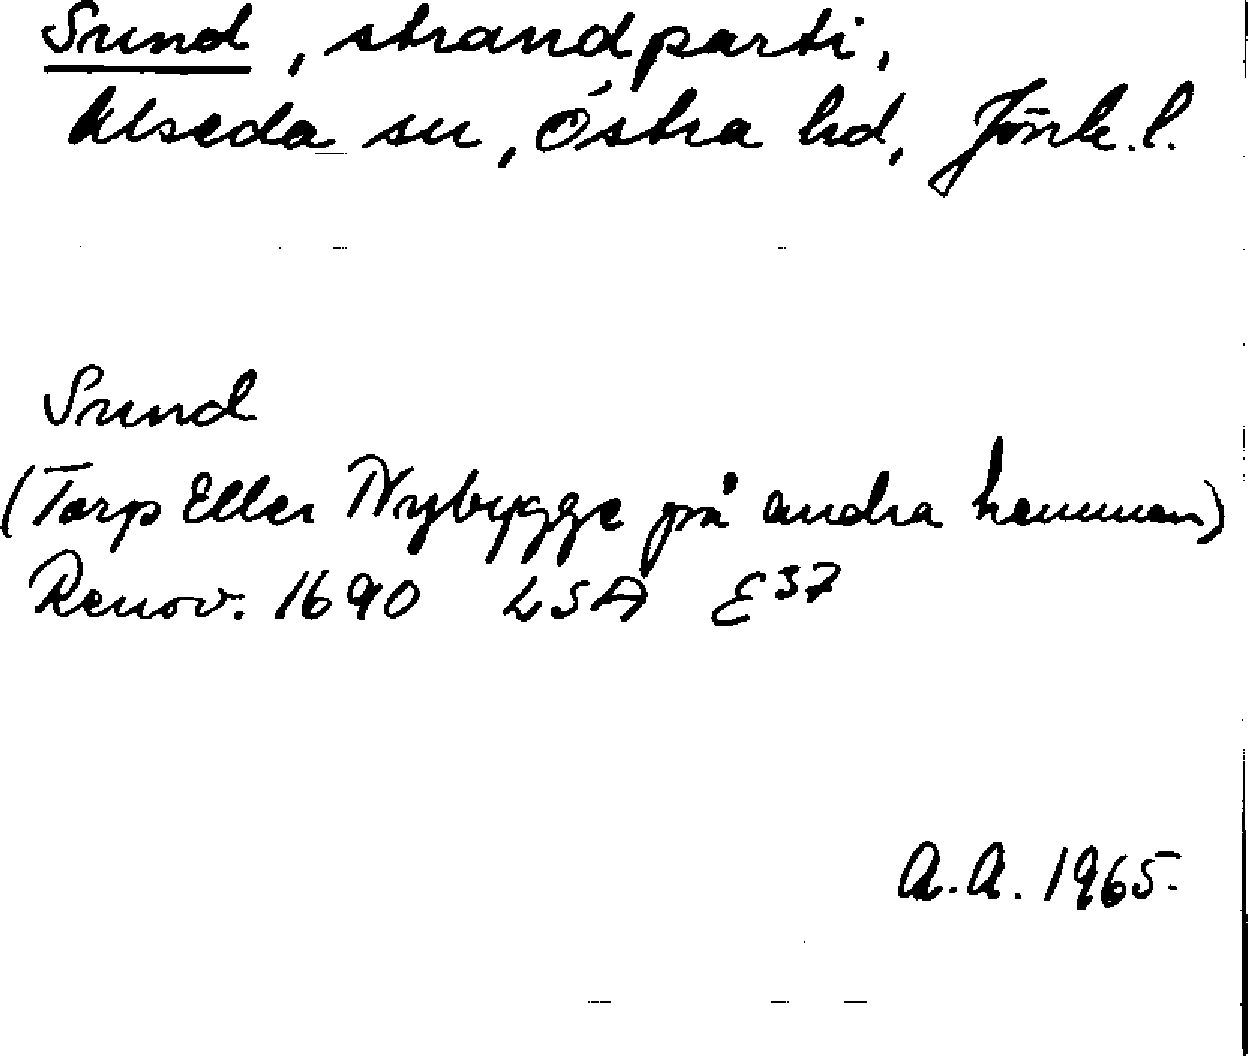 Sund, strandparti,
Alseda sn, Östra hd, Jönk. l.
Sund
(Torp Eller Nybygge på andra hemman)
Renov. 1690 LSA E37
A.A. 1965.